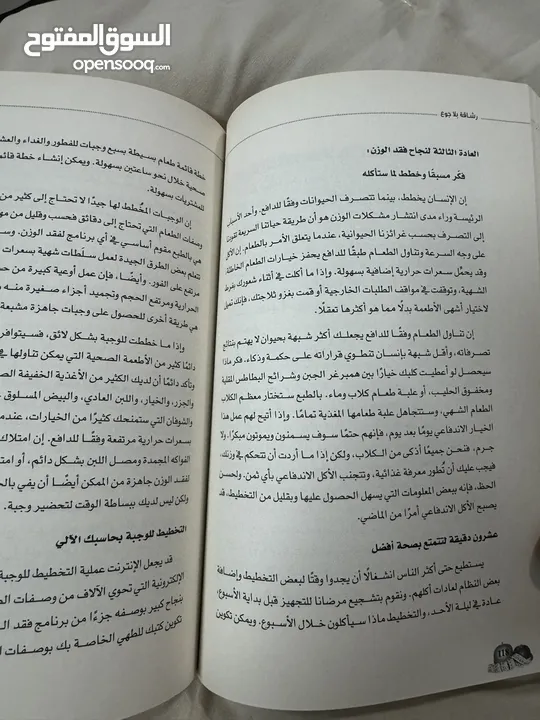 السوق المفتوح
opensooq.com
رشاقة بلا جوع
العادة الثالثة لنجاح فقد الوزن:
فكر مسبقًا وخطط لما ستأكله
إن الإنسان يخطط، بينما تتصرف الحيوانات وفقًا للدافع. وأحد الأسباب
الرئيسة وراء مدى انتشار مشكلات الوزن هو أن طريقة حياتنا السريعة تقودنا
إلى التصرف بحسب غرائزنا الحيوانية، عندما يتعلق الأمر بالطعام. إن
على وجه السرعة وتناول الطعام طبقًا للدافع يحفز خيارات الطعام الخاطئة
وقد يحمل سعرات حرارية إضافية بسهولة. وإذا ما أكلت في أثناء شعورك بفرط
الشهية، وتوقفت في مواقف الطلبات الخارجية أو قمت بغزو ثلاجتك، فإنك تميل
لاختيار أشهى الأطعمة بدلًا مما هو أكثرها تعقلًا.
إن تناول الطعام وفقًا للدافع يجعلك أكثر شبهة بحيوان لا يهتم بنتائج
تصرفاته، وأقل شبهة بإنسان تنطوي قراراته على حكمة وذكاء. فكر ماذا
سيحصل لو أعطيت كلبك خيارًا بين همبرغر الجبن وشرائح البطاطس المقلية
ومخفوق الحليب، أو علبة طعام كلاب وماء. بالطبع ستختار معظم الكلاب
الطعام الشهي، وستتجاهل علبة طعامها المغذية تمامًا. وإذا أتيح لهم عمل هذا
الخيار الاندفاعي يومًا بعد يوم، فإنهم حتمًا سوف يسمنون ويموتون مبكرًا. ولا
جرم، فنحن جميعًا أذكى من الكلاب، ولكن إذا ما أردت أن تتحكم في وزنك،
فيجب عليك أن تطور معرفة غذائية، وتتجنب الأكل الاندفاعي بأي ثمن. ولحسن
الحظ، فإنه ببعض المعلومات التي يسهل الحصول عليها وبقليل من التخطيط، قد
يصبح الأكل الاندفاعي أمرًا من الماضي.
عشرون دقيقة لتتمتع بصحة أفضل
يستطيع حتى أكثر الناس انشغالًا أن يجدوا وقتًا لبعض التخطيط وإضافة
بعض النظام لعادات أكلهم. ونقوم بتشجيع مرضانا للتجهيز قبل بداية الأسبوع،
عادة في ليلة الأحد، والتخطيط ماذا سيأكلون خلال الأسبوع. ويمكن تكوين
خطة قائمة طعام بسيطة بسبع وجبات للفطور والغداء والعشاء
صحية خلال نحو ساعتين بسهولة. ويمكن إنشاء خطة
للمشتريات بسهولة.
إن الوجبات المخطط لها جيدًا لا تحتاج إلى كثير من
وصفات الطعام التي تحتاج إلى دقائق فحسب وقليل من
هي بالطبع مقوم أساسي في أي برنامج لفقد الوزن.
تتعلم بعض الطرق الجيدة لعمل سلطات شهية بسعرات
مرتفع على الفور. وأيضًا، فإن عمل أوعية كبيرة من
الحرارية ومرتفع الحجم وتجميد أجزاء صغيرة منه
هي طريقة أخرى للحصول على وجبات جاهزة مشبعة
وإذا ما خططت للوجبة بشكل لائق، فسيتوافر
دائمًا كثير من الأطعمة الصحية التي يمكن تناولها
وتأكد دائمًا أن لديك الكثير من الأغذية الخفيفة
والجزر، والخيار، واللبن العادي، والبيض المسلوق
الشوفان التي ستمنحك كثيرًا من الخيارات، عندما
بسعرات حرارية مرتفعة وفقًا للدافع. إن امتلاك
الفواكه المجمدة ومصل اللبن بشكل دائم، أو
لفقد الوزن الجاهزة من الممكن أيضًا أن يفي
ولكن ليس لديك ببساطة الوقت لتحضير وجبة.
التخطيط للوجبة بحاسبك الآلي
قد يجعل الإنترنت عملية التخطيط للوجبة
الإلكترونية التي تحوي الآلاف من وصفات
بنجاح كبير بوصفه جزءًا من برنامج فقد
تكوين كتبك للطهي الخاصة بك بوصفات